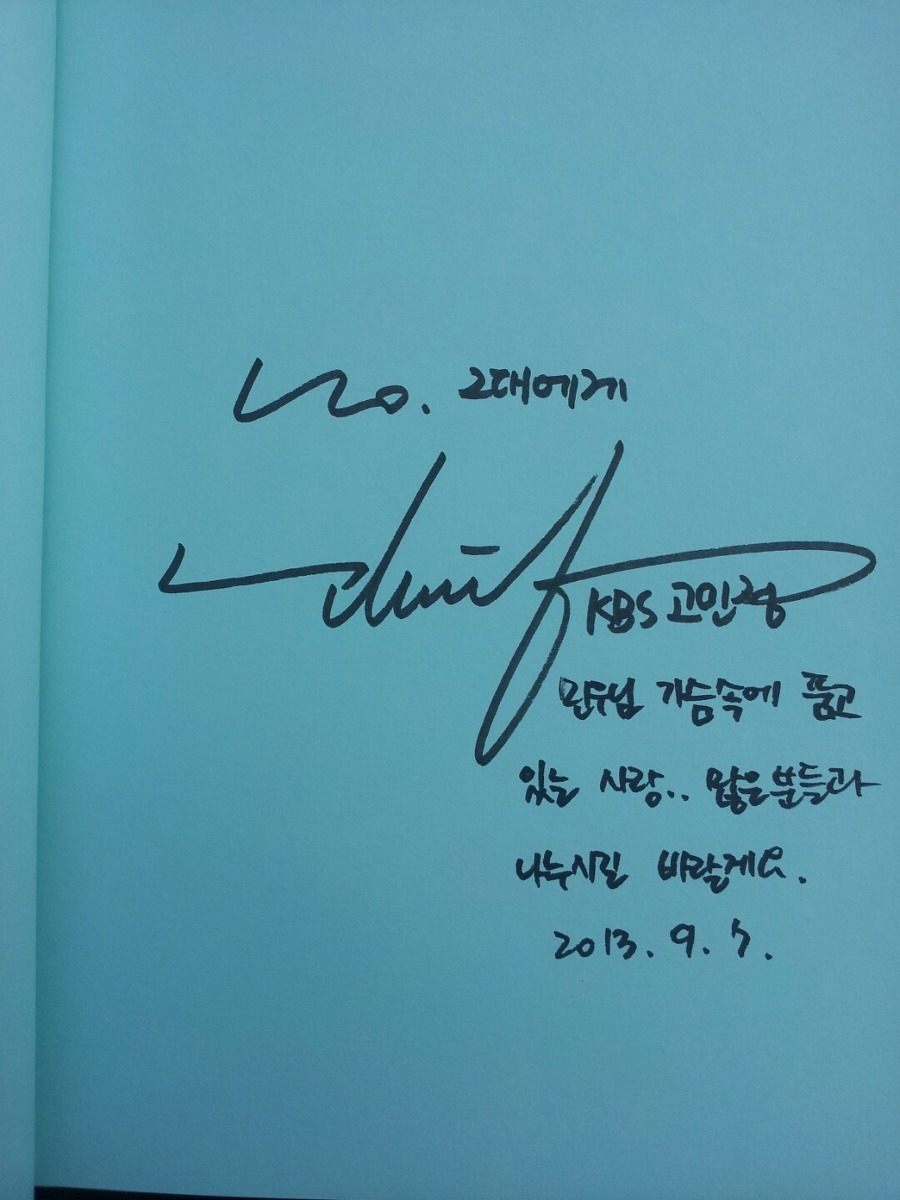 그대에게
KBS 고민정
민우님 가슴속에 품고
있는 사랑.. 많은분들과
나누시길 바랄게요.
2013. 9. 7.